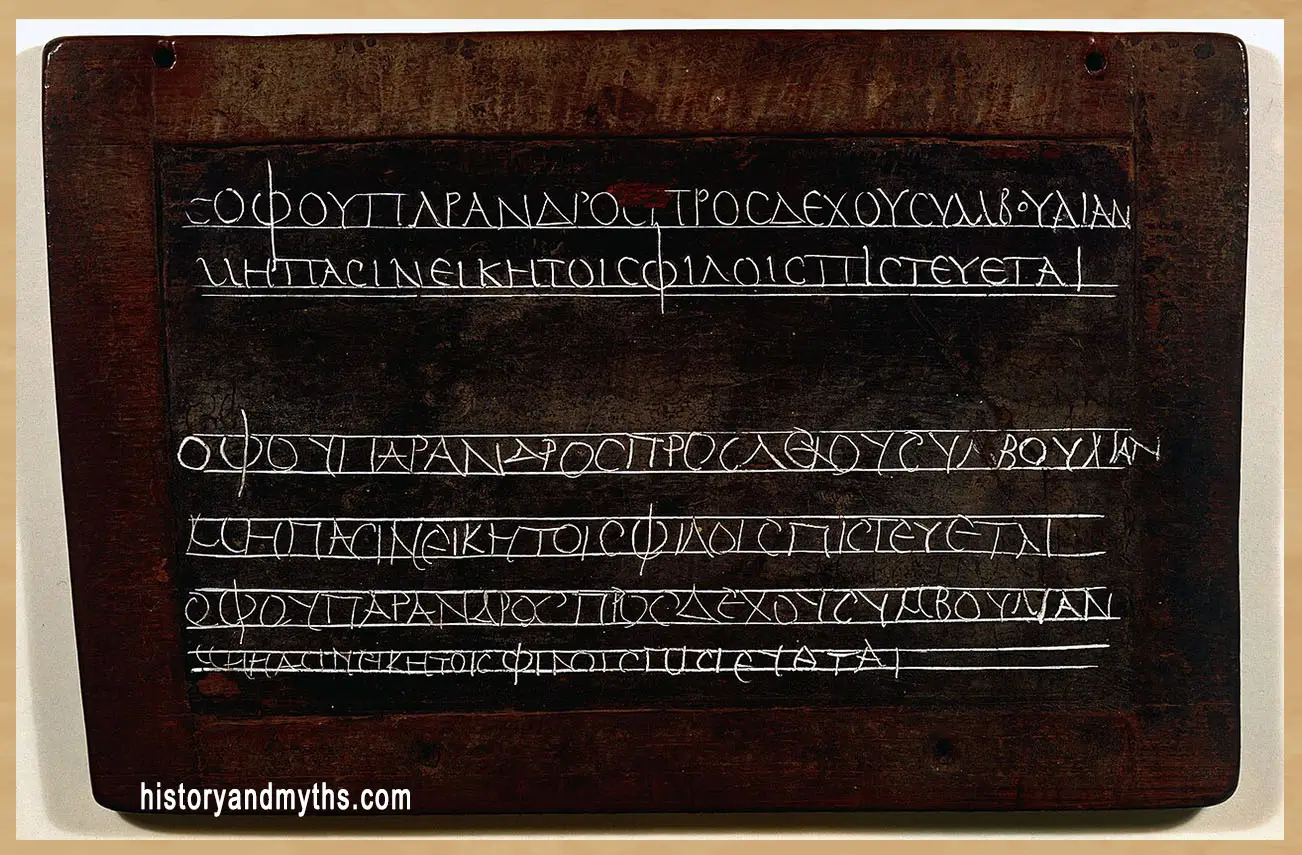 ϹΟΦΟΥΠΑΡΑΝΔΡΟϹΠΡΟϹΔΕΧΟΥϹΥΜΒΟΥΛΙΑΝ
ΜΗΠΑϹΙΝΕΙΚΗΤΟΙϹΦΙΛΟΙϹΠΙϹΤΕΥΕΤΑΙ
ΟΦΟΥΠΑΡΑΝΔΡΟϹΠΡΟϹΔΕΧΟΥϹΥΜΒΟΥΛΙΑΝ
ΜΗΠΑϹΙΝΕΙΚΗΤΟΙϹΦΙΛΟΙϹΠΙϹΤΕΥΕΤΑΙ
ΟΦΟΥΠΑΡΑΝΔΡΟϹΠΡΟϹΔΕΧΟΥϹΥΜΒΟΥΛΙΑΝ
ΜΗΠΑϹΙΝΕΙΚΗΤΟΙϹΦΙΛΟΙϹΠΙϹΤΕΥΕΤΑΙ
historyandmyths.com